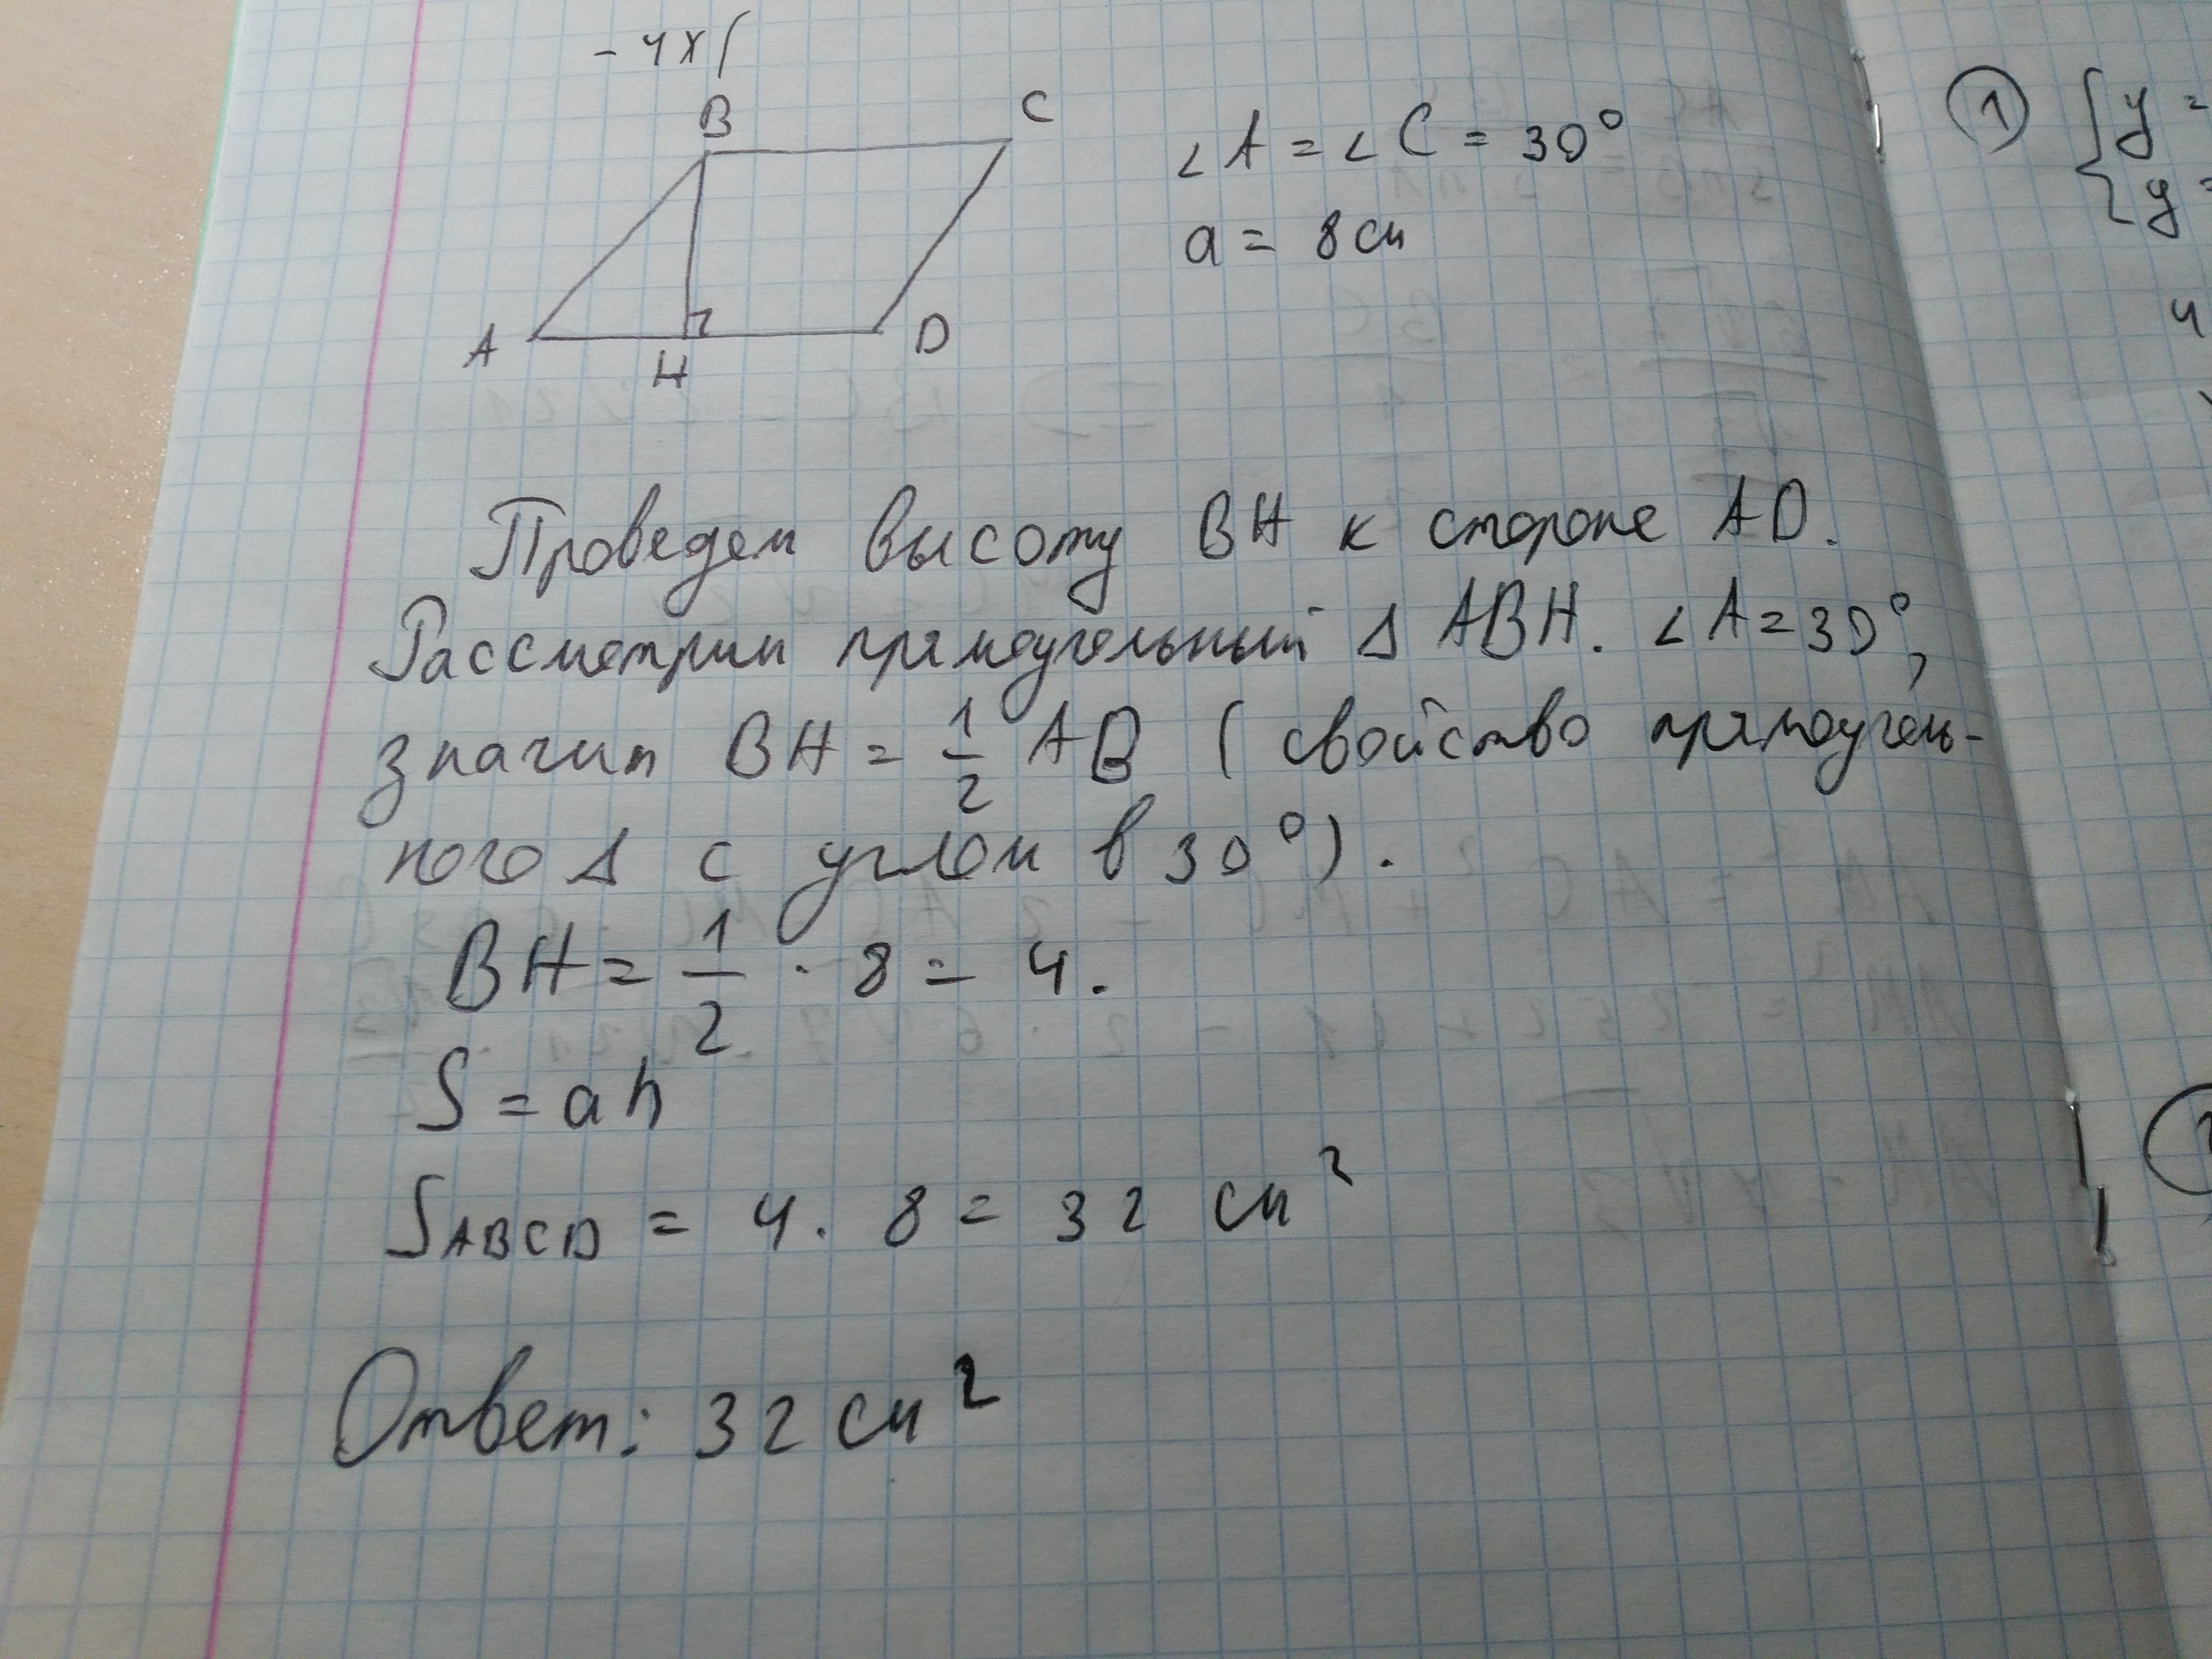 - 4x(
B C
A H D
∠A = ∠C = 30°
a = 8 см
Проведем высоту BH к стороне AD.
Рассмотрим прямоугольный Δ ABH. ∠A = 30°,
значит BH = 1/2 AB (свойство прямоуголь-
ного Δ с углом в 30°).
BH = 1/2 · 8 = 4.
S = ah
SABCD = 4 · 8 = 32 см²
Ответ: 32 см²
1 { y =
y =
4